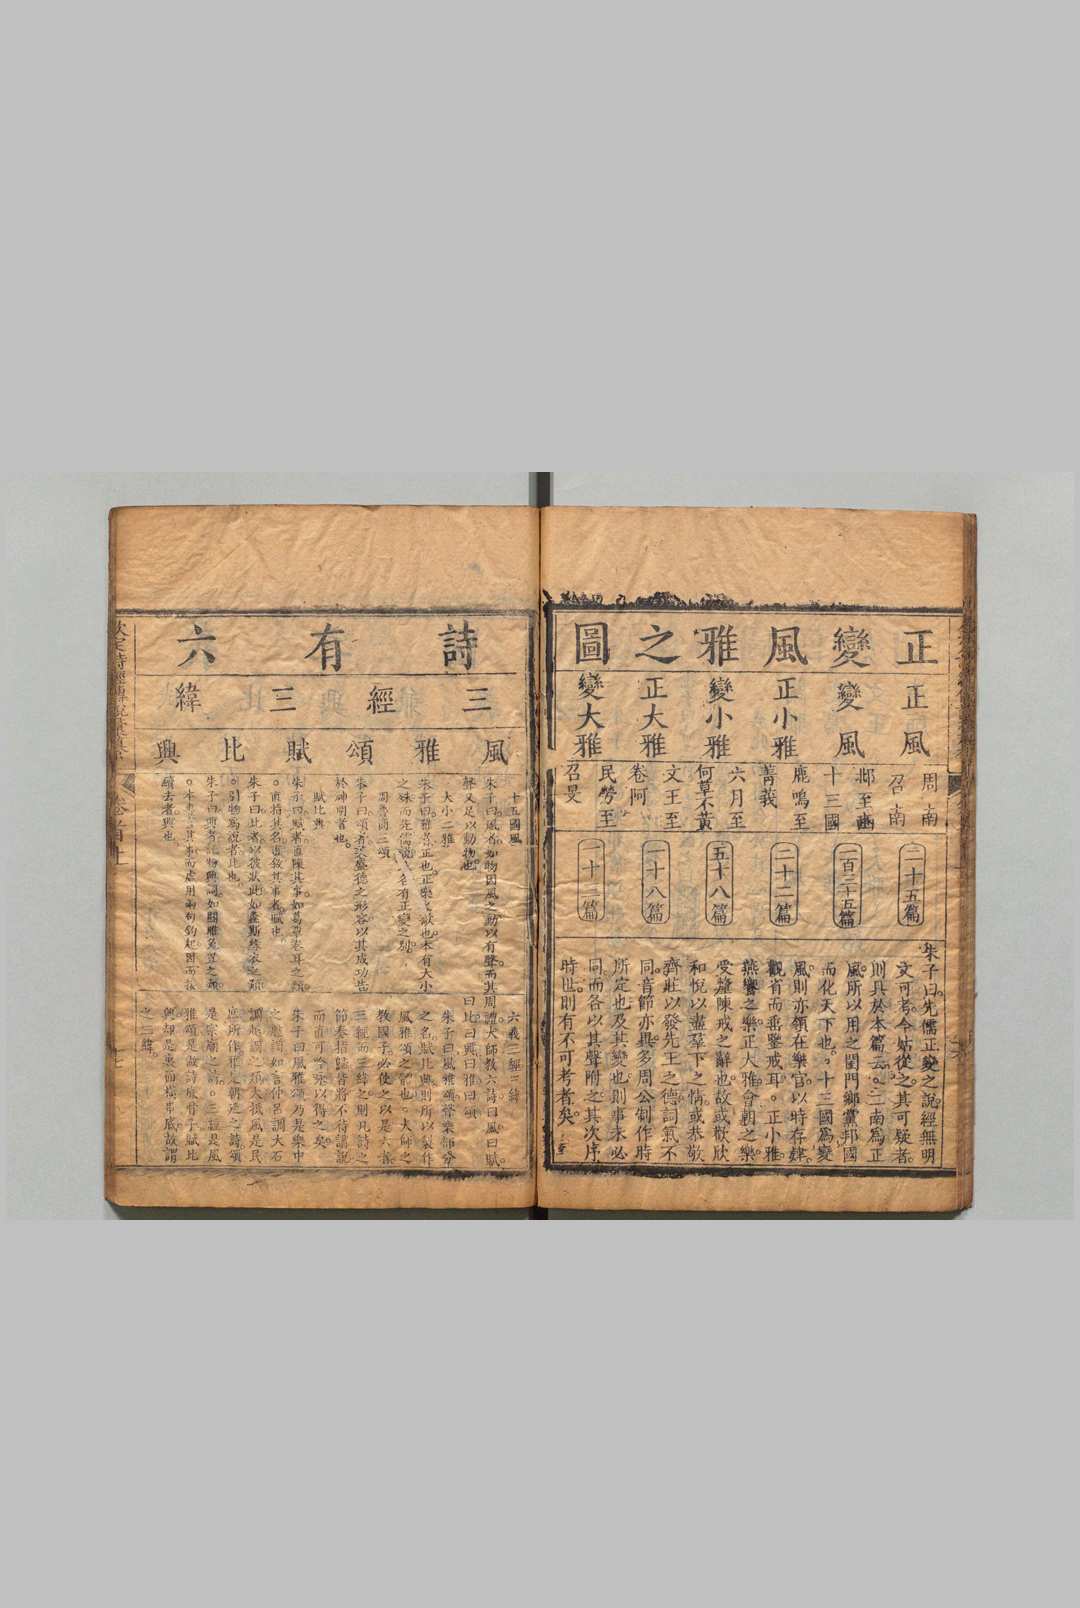 正變風雅之圖
正風
變風
正小雅
變小雅
正大雅
變大雅
周南
召南
邶至豳
十三國
鹿鳴至
菁莪
六月至
何草不黃
文王至
卷阿
民勞至
召旻
二十五篇
一百三十五篇
二十二篇
五十八篇
一十八篇
一十三篇
朱子曰先儒正變之說經無明
文可考今姑從之其可疑者
則具於本篇云。二南為正
風所以用之閨門鄉黨邦國
而化天下也。十三國為變
風則亦領在樂官以時存肄
觀省而垂鑒戒耳。正小雅
燕饗之樂正大雅會朝之樂
受釐陳戒之辭也故或歡欣
和悅以盡羣下之情或恭敬
齊莊以發先王之德詞氣不
同音節亦異多周公制作時
所定也及其變也則事未必
同而各以其聲附之其次序
時世則有不可考者矣
詩有六
三經三緯
風雅頌賦比興
十五國風
朱子曰風者如物因風之動以有聲而其
聲又足以動物也
大小二雅
朱子曰雅者正也正樂之歌也本有大小
之殊而先儒說又各有正變之別
周魯商三頌
朱子曰頌者美盛德之形容以其成功告
於神明者也
賦比興
朱子曰賦者直陳其事如葛覃卷耳之類
。直指其名直敘其事者賦也
朱子曰比者以彼狀此如螽斯綠衣之類
。引物為說者比也
朱子曰興者託物興詞如關雎兔罝之類
。本要言其事而虛用兩句釣起因而接
續去者興也
六義三經三緯
周禮大師教六詩曰風曰賦
曰比曰興曰雅曰頌
朱子曰風雅頌聲樂部分
之名賦比興則所以製作
風雅頌之體也。大師之
教國子必使之以是六義
三經而三緯之則凡詩之
節奏指歸皆將不待講說
而直可吟詠以得之矣
朱子曰風雅頌乃是樂中
之腔調如言仲呂調大石
調越調之類大抵風是民
庶所作雅是朝廷之詩頌
是宗廟之詩。三經是風
雅頌是做詩底骨子賦比
興却是裏面橫串底故謂
之三緯